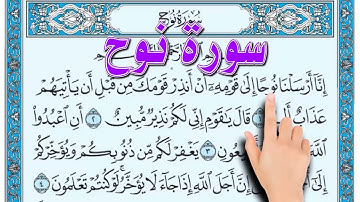 سُورَةُ نُوحٍ
سورة نوح
إِنَّا أَرْسَلْنَا نُوحًا إِلَىٰ قَوْمِهِ أَنْ أَنذِرْ قَوْمَكَ مِن قَبْلِ أَن يَأْتِيَهُمْ
عَذَابٌ قَالَ يَٰقَوْمِ إِنِّي لَكُمْ نَذِيرٌ مُّبِينٌ ٢ أَنِ اعْبُدُوا
اللَّهَ ٣ يَغْفِرْ لَكُم مِّن ذُنُوبِكُمْ وَيُؤَخِّرْكُمْ
إِلَىٰ إِنَّ أَجَلَ اللَّهِ إِذَا جَاءَ لَا يُؤَخَّرُ لَوْ كُنتُمْ تَعْلَمُونَ ٤